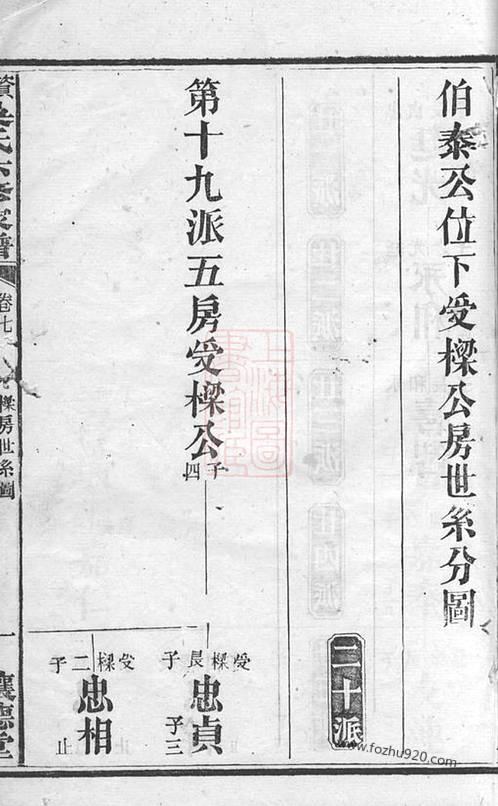 伯泰公位下受樑公房世系分圖
二十派
第十九派五房受樑公
子四
受樑長子
忠貞
子三
受樑二子
忠相
止
止
氏六修家譜
卷七
樑房世系圖
一
讓德堂
上海圖書館藏
www.fozhu920.com